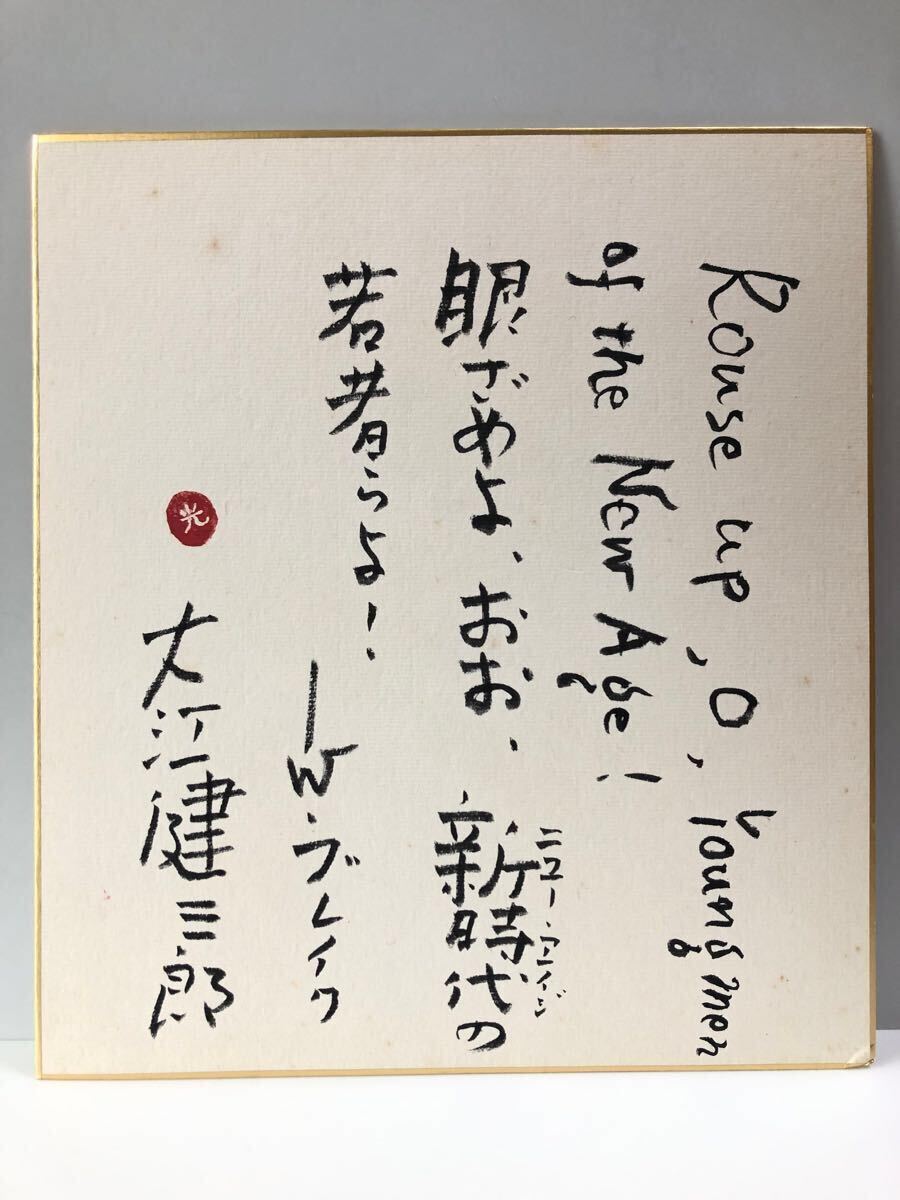 Rouse up, O, Young men
of the New Age!
眼ざめよ、おお、新時代の
ニュー・エイジ
若者らよ!
—W・ブレイク
大江健三郎
光